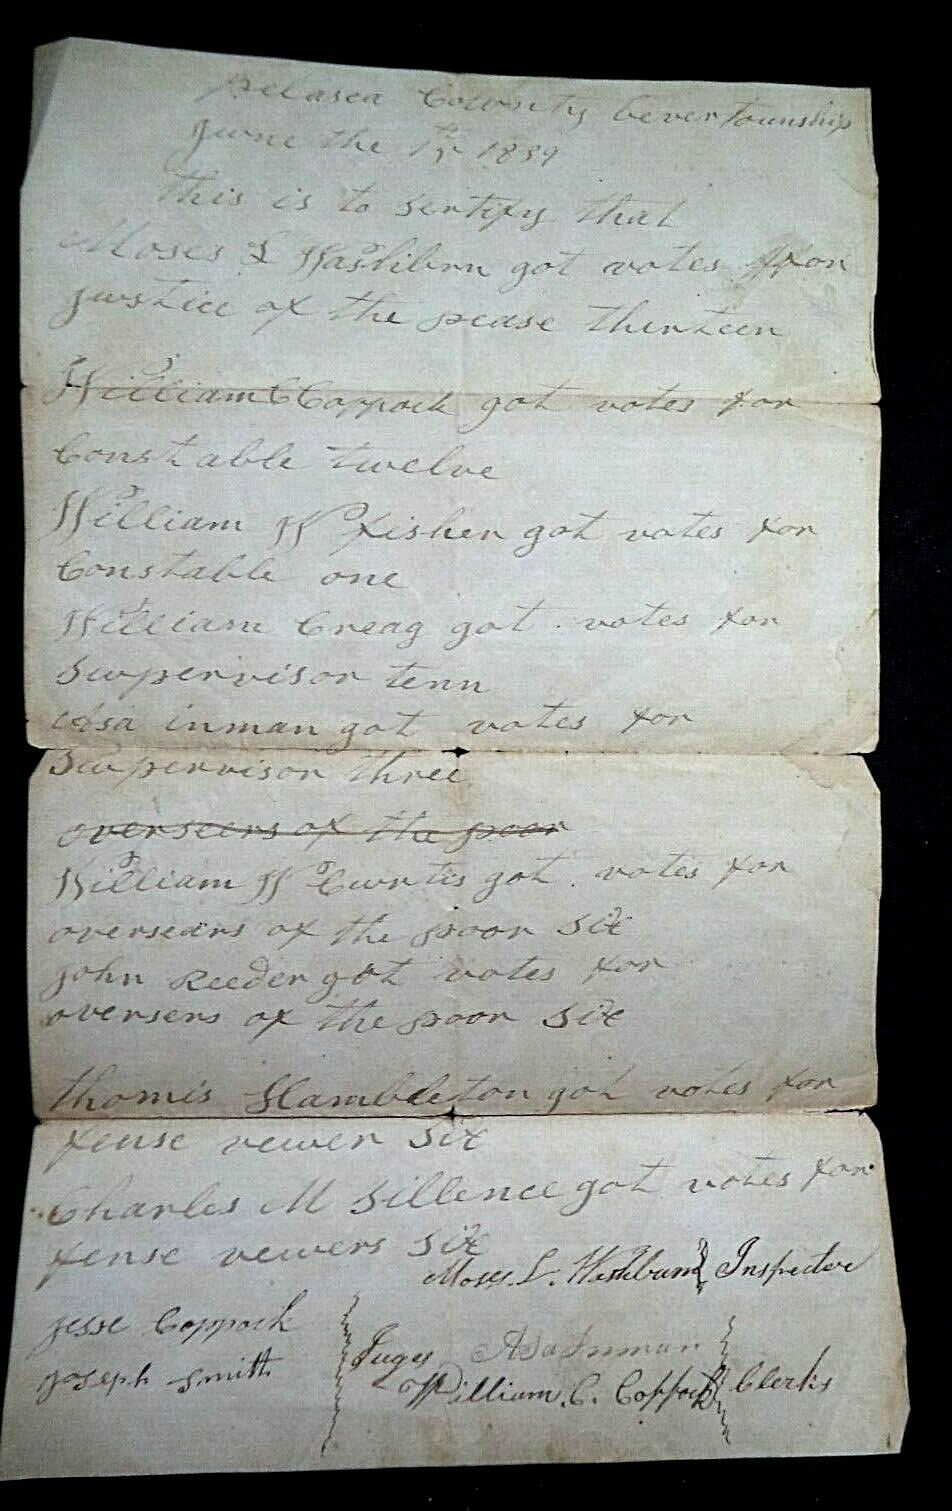 pulasca County bever Township
June the 1st 1839
this is to sertify that
Moses L Washburn got votes for
justice of the pease thirteen
William C Coppock got votes for
Constable twelve
William W fisher got votes for
Constable one
William Creag got votes for
Supervisor tenn
Asa inman got votes for
Supervisor three
overseers of the poor
William W Curtis got votes for
overseers of the poor six
john Reeder got votes for
oversers of the poor six
thomis Hambleton got votes for
fense vewer six
Charles M Sillence got votes for
fense vewers six
Moses. L. Washburn Inspector
jesse Coppock
joseph smith
Juges
Asa Inman
William. C. Coppock
Clerks